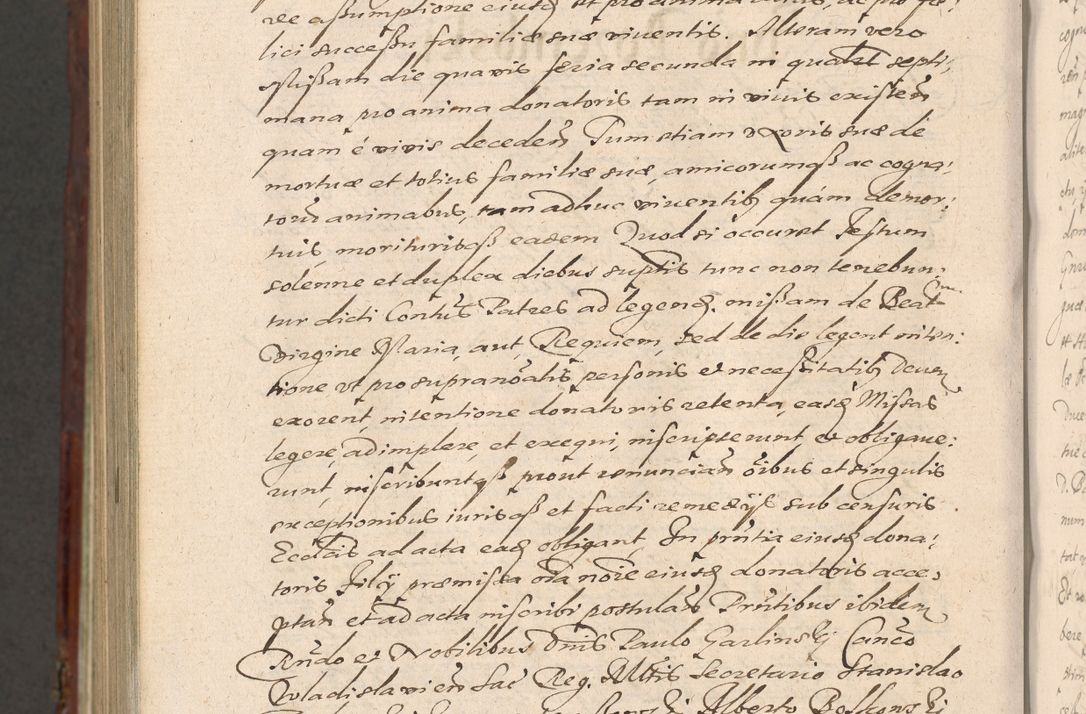 lici successu familiæ suæ viventis. Alteram vero
Missam die quavis feria secunda in qualt septi,
mana pro anima donatoris tam in vivis existen
quam é vivis deceden Tum etiam Uxoris suæ de
mortuæ et totius familiæ suæ, amicorumq ac cogna,
torũ animabus, tam adhuc viventib quám demor,
tuis, moriturisq eadem Quod si occurret Festum
solenne et duplex diebus suptis tunc non tenebun,
tur dicti Contus Patres ad legend. missam de Beatma
Virgine Maria, aut, Requiem, sed de die legent inten:
tione vt pro supranoatis personis et necessitatib Deum
exorent, intentione donatoris retenta, easq Missas
legere, adimplere et exequi, inscripserunt, et obligave:
runt, inscribuntq prout renuncian oibus et singulis
exceptionibus iurisq et facti remedijs sub censuris
Ecclcis ad acta eaq obligant, In pntia eiusq dona,
toris Jllu præmissa oia noie eiusq donatoris acce,
ptan et ad acta inscribi postulan Pntibus ibidem
Rndo et Nobilibus Dnis Paulo Garlinski Canco
Wladislavien Sac Reg. Mttis Secretario Stanislao
Alberto Boskowski